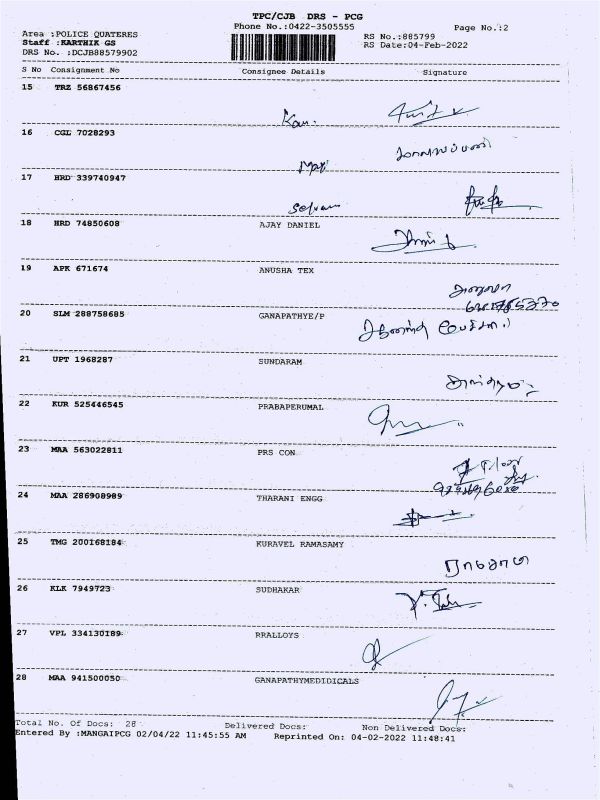 TPC/CJB DRS - PCG
Phone No.:0422-3505555
Page No.:2
Area :POLICE QUATERES
Staff :KARTHIK GS
DRS No. :DCJB88579902
RS No.:885799
RS Date:04-Feb-2022
S No Consignment No Consignee Details Signature
15 TRZ 56867456
Kan.
16 CGL 7028293
17 HRD 339740947
Selvam
18 HRD 74850608 AJAY DANIEL
19 APK 671674 ANUSHA TEX
20 SLM 288758685 GANAPATHYE/P
21 UPT 1968287 SUNDARAM
22 KUR 525446545 PRABAPERUMAL
23 MAA 563022811 PRS CON
24 MAA 286908989 THARANI ENGG
25 TMG 200168184 KURAVEL RAMASAMY
26 KLK 7949723 SUDHAKAR
27 VPL 334130189 RRALLOYS
28 MAA 941500050 GANAPATHYMEDIDICALS
Total No. Of Docs: 28 Delivered Docs: Non Delivered Docs:
Entered By :MANGAIPCG 02/04/22 11:45:55 AM Reprinted On: 04-02-2022 11:48:41